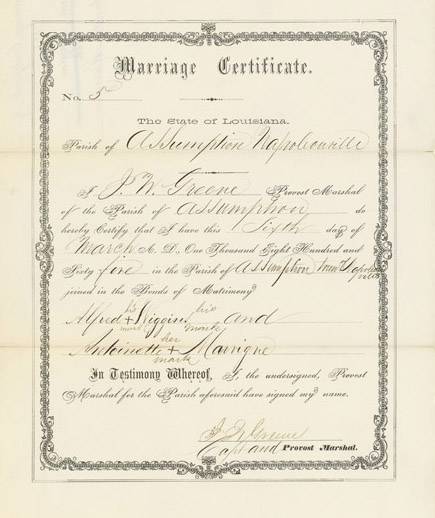 Marriage Certificate.
No. 5
The State of Louisiana.
Parish of Assumption Napoleonville
I, J. W. Greene Provost Marshal
of the Parish of Assumption do
hereby Certify that I have this Sixth day of
March A. D. One Thousand Eight Hundred and
Sixty five in the Parish of Assumption town Napoleonville
joined in the Bonds of Matrimony
his his
Alfred + Wiggins and
mark marks
her
Antoinette + Marrigne
marks
In Testimony Whereof, I, the undersigned, Provost
Marshal for the Parish aforesaid have signed my name.
Greene
Capt and Provost Marshal.